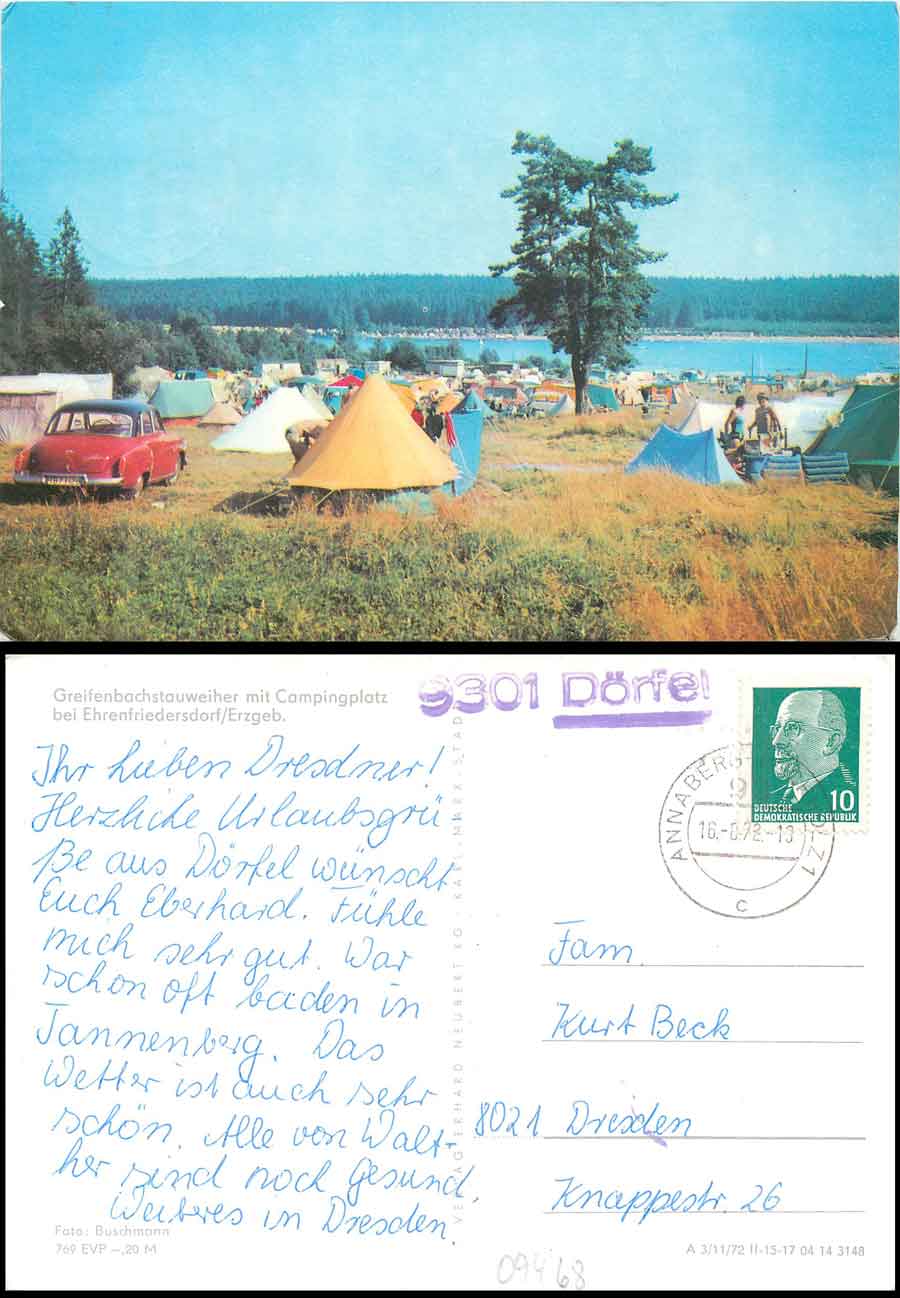 Greifenbachstauweiher mit Campingplatz
bei Ehrenfriedersdorf/Erzgeb.
9301 Dörfel
DEUTSCHE
DEMOKRATISCHE REPUBLIK
10
ANNABERG
16.-8.72.-18
c
Ihr lieben Dresdner!
Herzliche Urlaubsgrü-
ße aus Dörfel wünscht
Euch Eberhard. Fühle
mich sehr gut. War
schon oft baden in
Tannenberg. Das
Wetter ist auch sehr
schön. Alle von Walt-
her sind noch gesund.
Weiteres in Dresden.
Foto: Buschmann
769 EVP –,20 M
VERLAG ERHARD NEUBERT KG · KARL-MARX-STADT
Fam.
Kurt Beck
8021 Dresden
Knappestr. 26
A 3/11/72 II-15-17 04 14 3148
09468